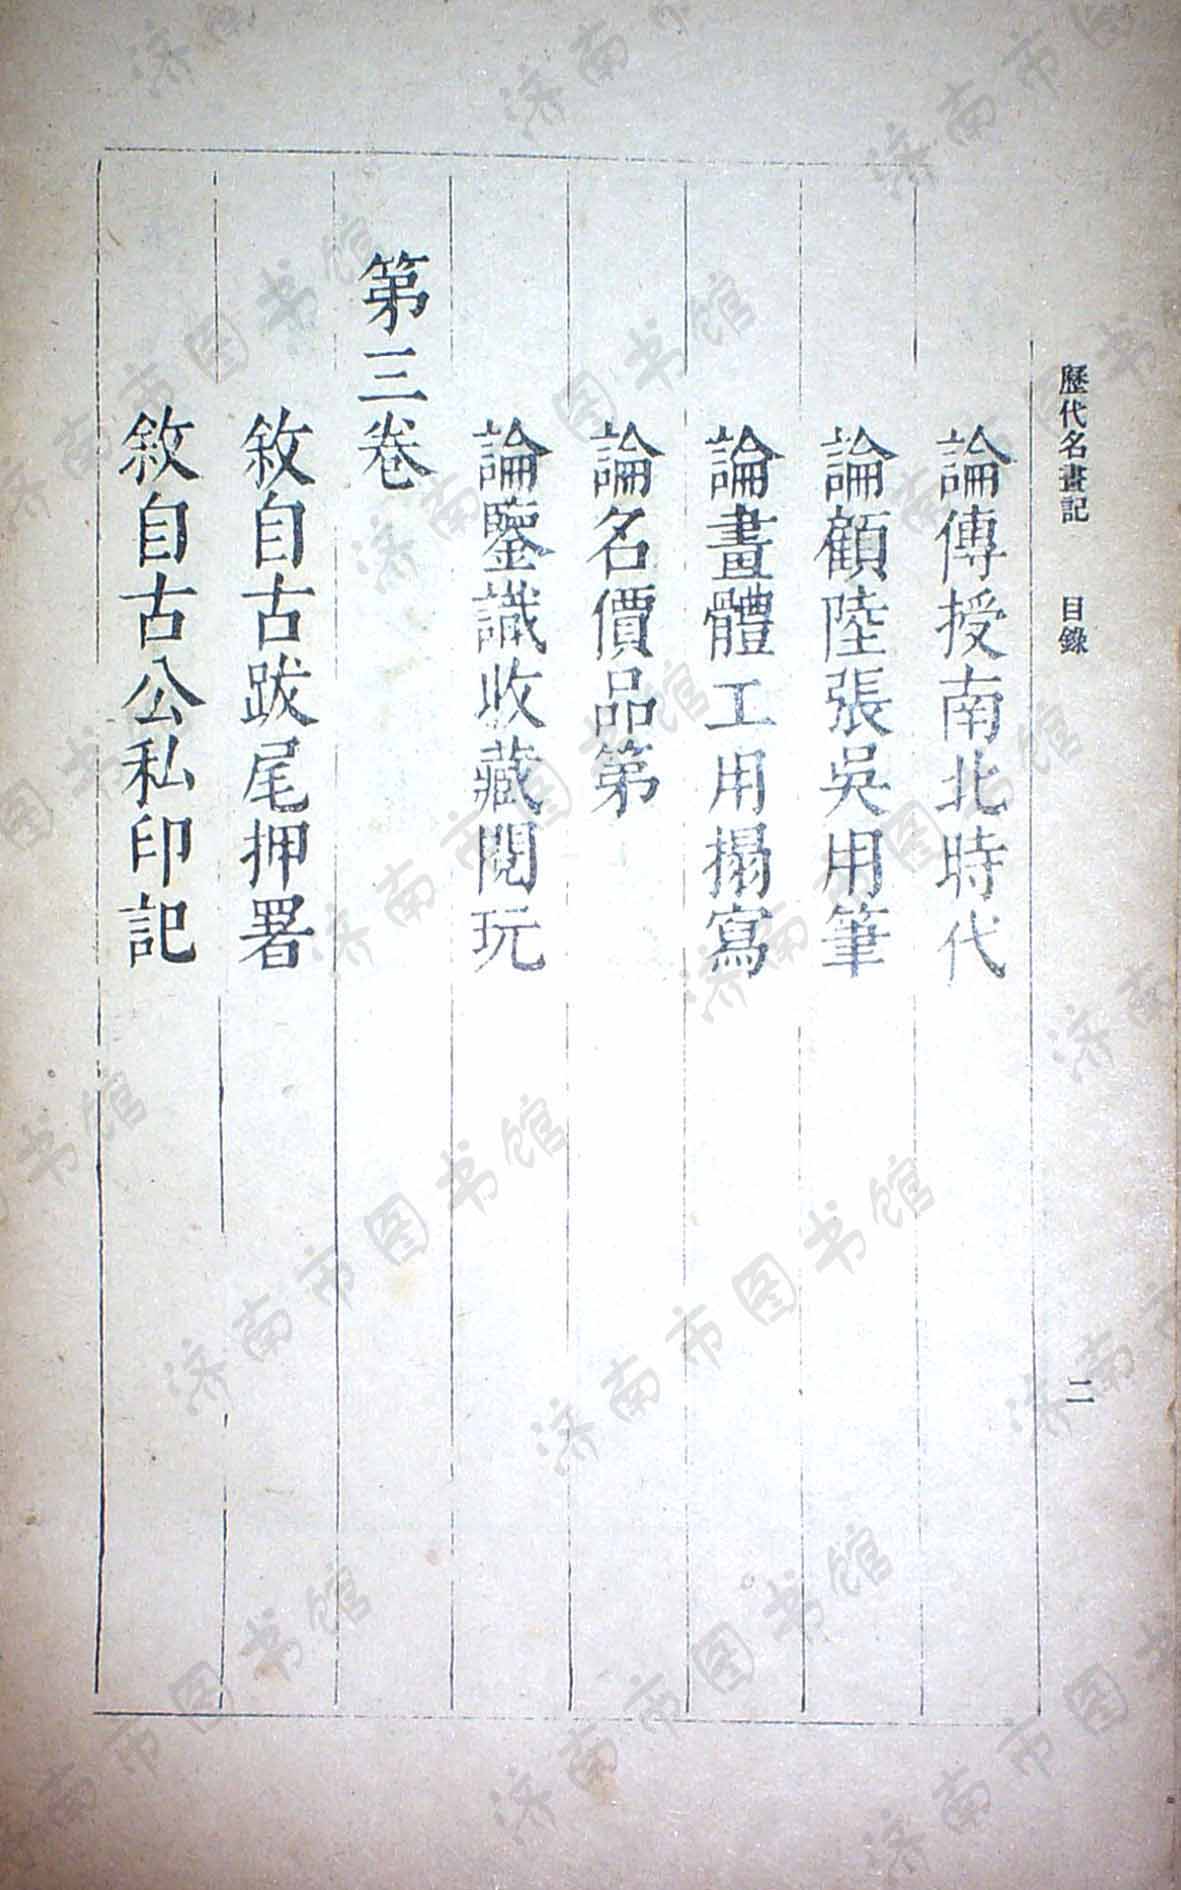 歷代名畫記 目錄 二
論傳授南北時代
論顧陸張吳用筆
論畫體工用搨寫
論名價品第
論鑒識收藏閱玩
第三卷
敘自古跋尾押署
敘自古公私印記
济南市图书馆